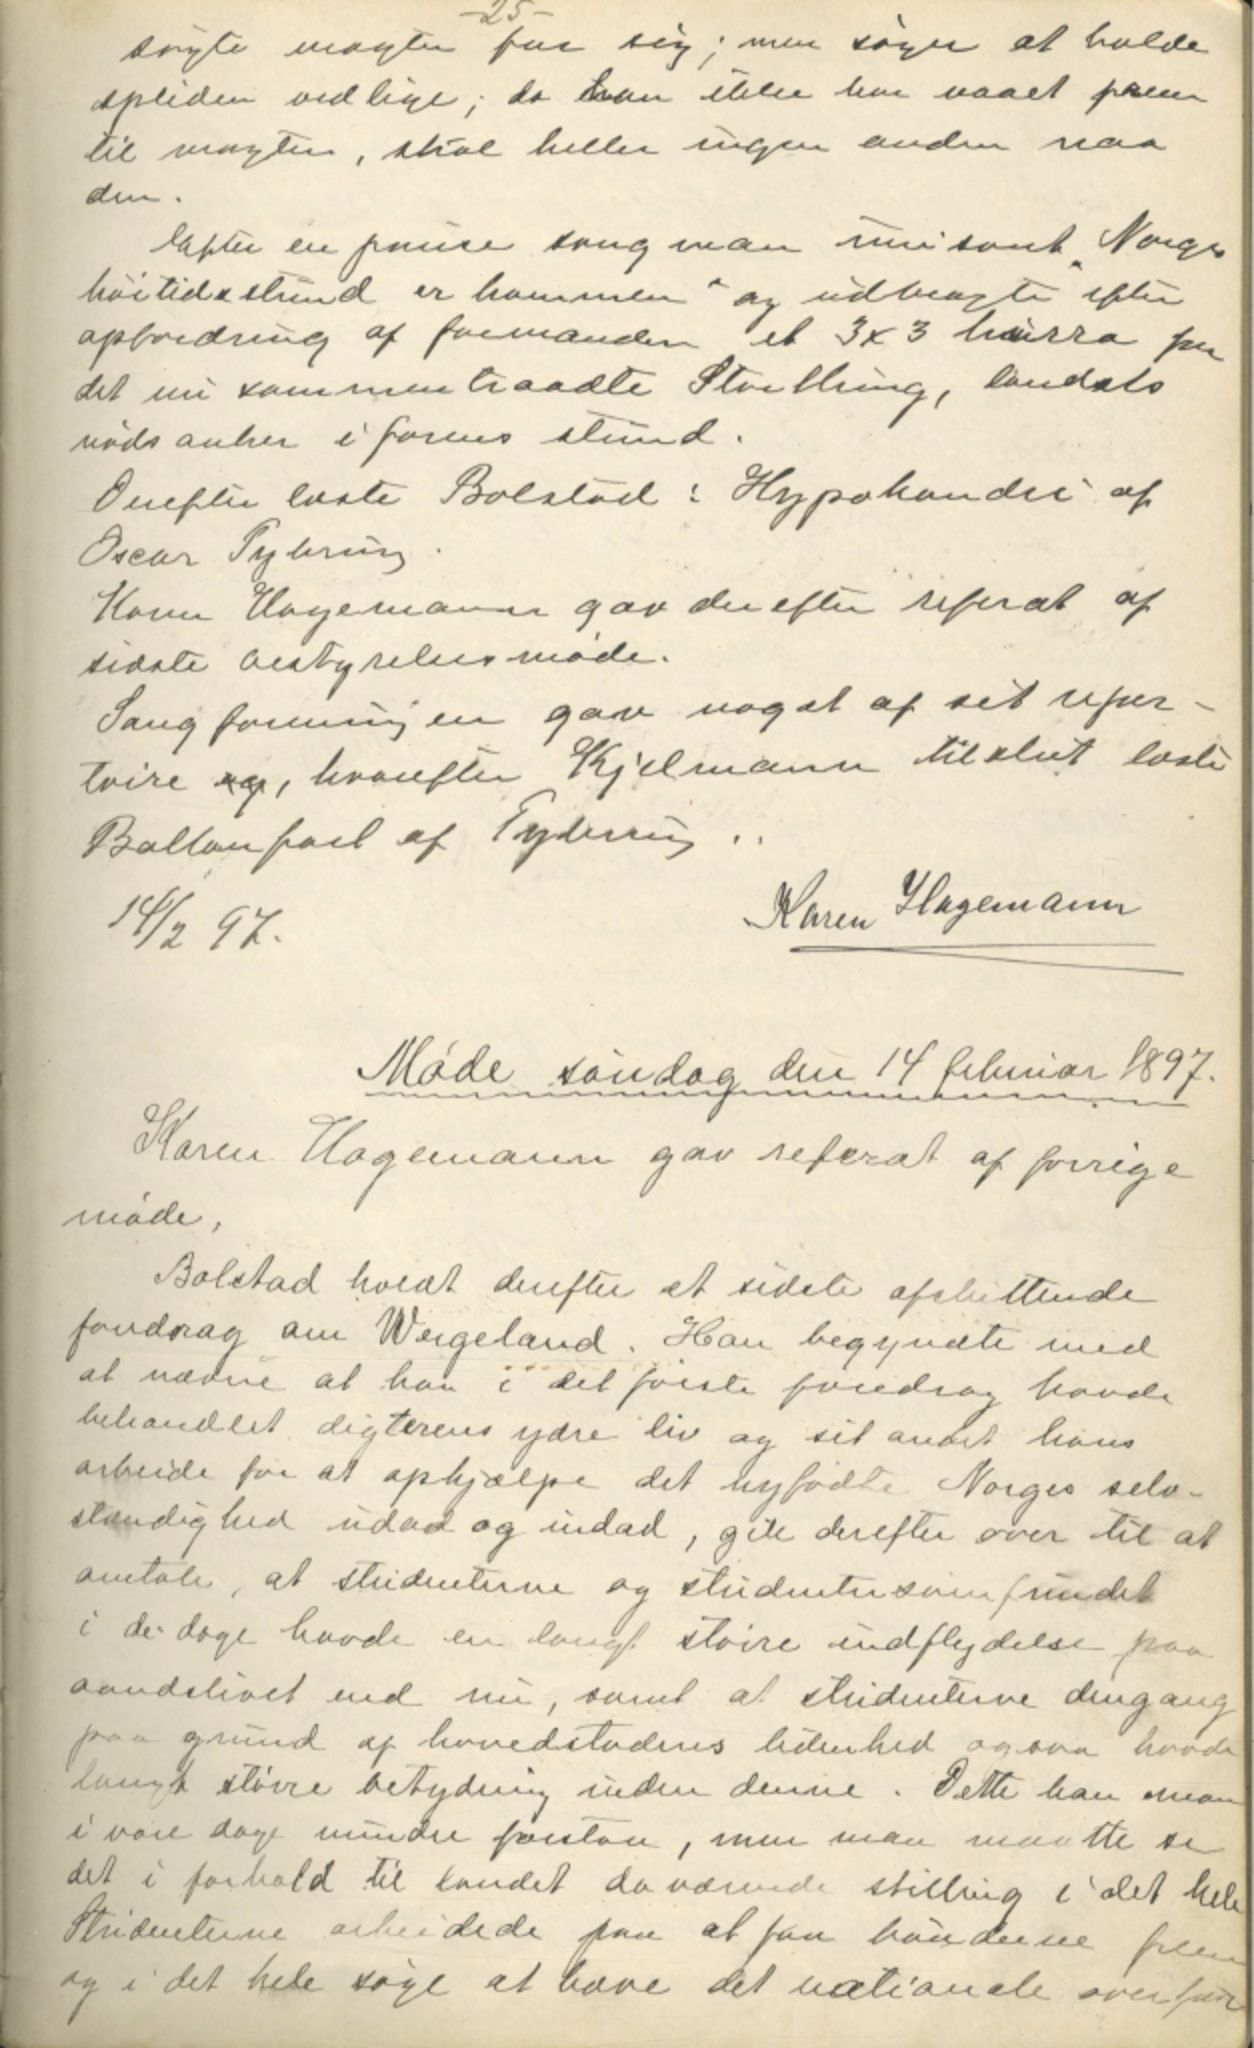 -25-
søgte magten for sig; men søger at holde
spliden vedlige; da han ikke har naaet frem
til magten, skal heller ingen anden naa
den.
Efter en pause sang man unisont „Norges
høitidsstund er kommen" og udbragte efter
opfordring af formanden et 3x3 hurra for
det nu sammentraadte Storthing, landets
nødsanker i farens stund.
Derefter læste Bolstad: Hypokondri af
Oscar Tybring.
Karen Hagemann gav derefter referat af
sidste bestyrelsesmøde.
Sangforeningen gav noget af sit reper-
toire og, hvorefter Kjelmann tilslut læste
Ballonfart af Tybring..
14/2 97.
Karen Hagemann
Møde søndag den 14 februar 1897.
Karen Hagemann gav referat af forrige
møde,
Bolstad holdt derefter et sidste afsluttende
foredrag om Wergeland. Han begyndte med
at nævne at han i det første foredrag havde
behandlet digterens ydre liv og sit andet hans
arbeide for at ophjælpe det nyfødte Norges selv-
stændighed udad og indad, gik derefter over til at
omtale, at studenterne og studentersamfundet
i de dage havde en langt større indflydelse paa
aandslivet end nu, samt at studenterne dengang
paa grund af hovedstadens lidenhed ogsaa havde
langt større betydning inden denne. Dette kan man
i vore dage mindre forstaa, men man maatte se
det i forhold til landet daværende stilling i det hele
Studenterne arbeidede paa at faa bønderne frem
og i det hele søge at hæve det nationale overfor